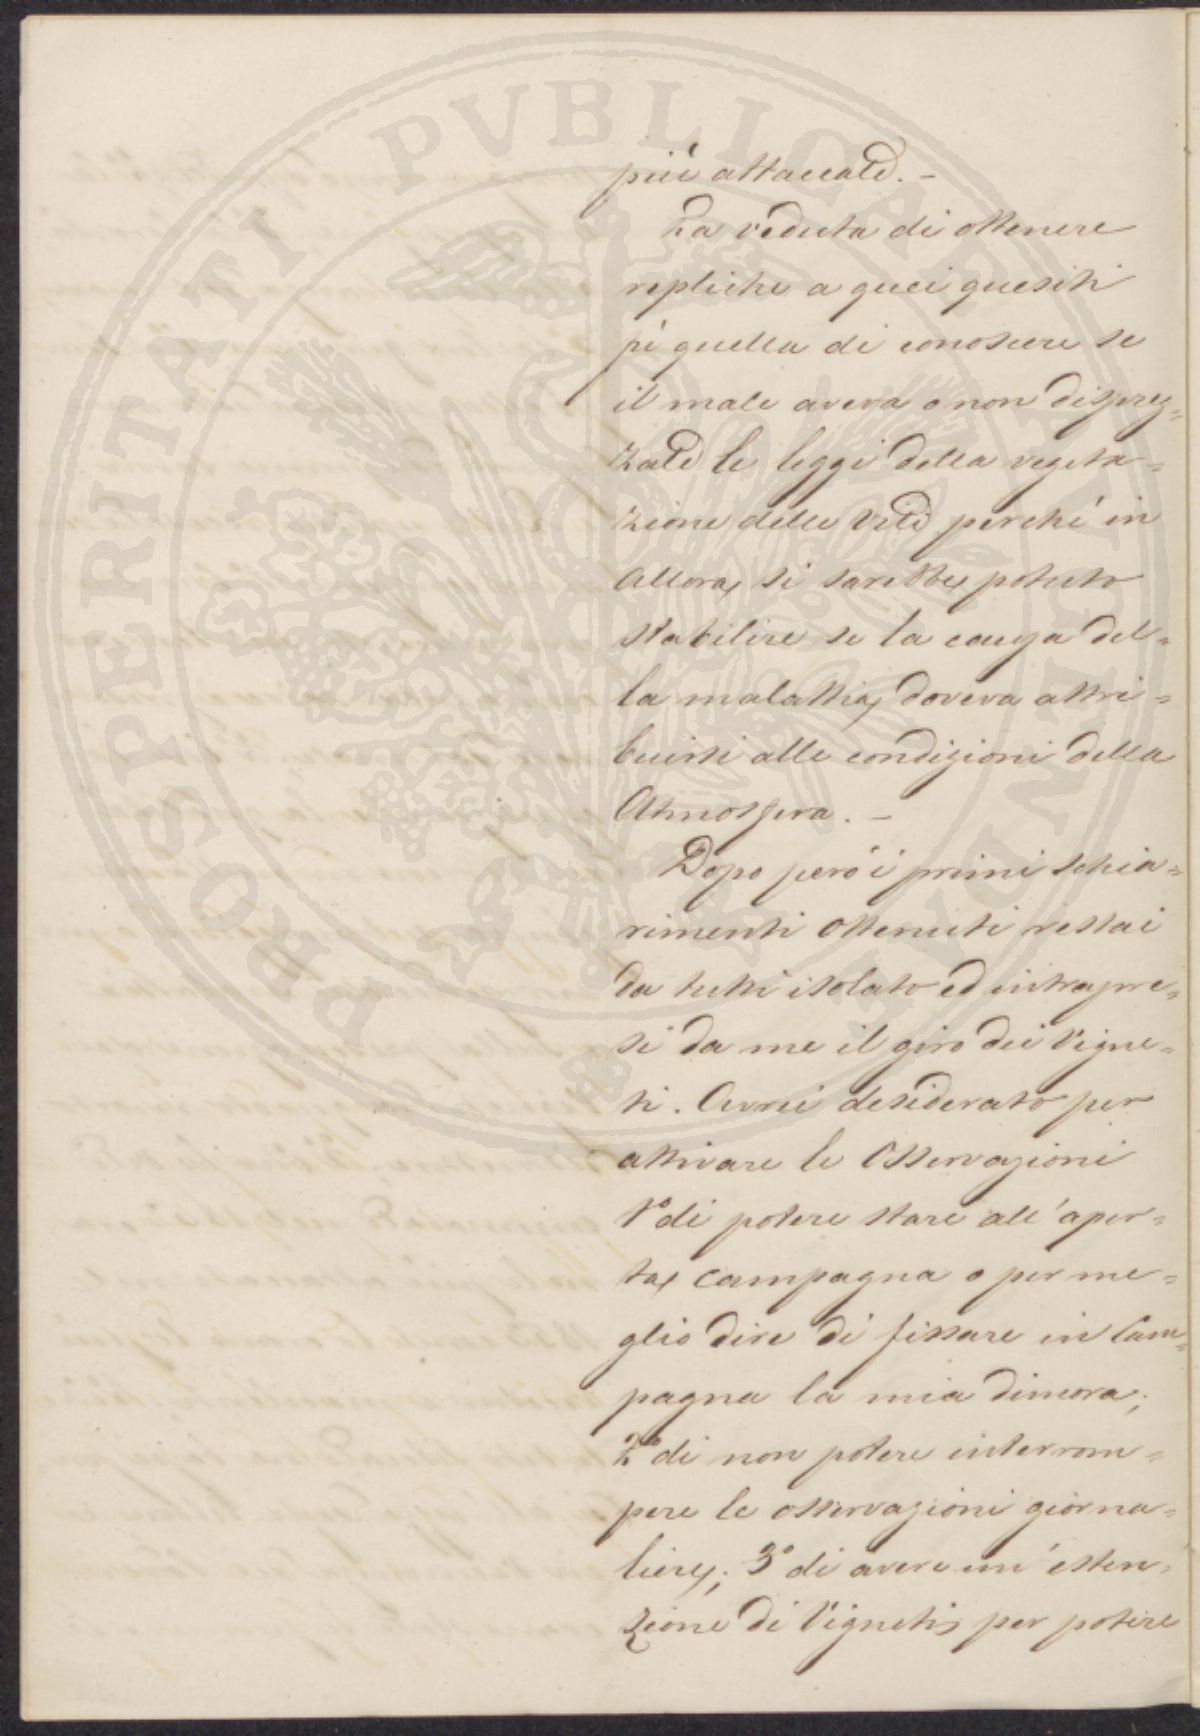 PROSPERITATI PVBLICAE AVGENDAE
più attaccate. –
La veduta di ottenere
repliche a quei quesiti
fù quella di conoscere se
il male aveva o non disprez=
zate le leggi della vegeta=
zione delle Viti perchè in
allora, si sarebbe, potuto
stabilire se la causa del=
la malattia, doveva attri=
buirsi alle condizioni della
Atmosfera. –
Dopo però i primi schia=
rimenti ottenuti restai
da tutti isolato ed intrapre=
si da me il giro dei Vigne=
ti. Avrei desiderato per
attivare le Osservazioni
1° di potere stare all'aper=
ta, campagna o per me=
glio dire di fissare in Cam=
pagna la mia dimora;
2° di non potere interrom=
pere le osservazioni giorna=
liere,; 3° di avere un'esten=
zione di Vigneti, per potere